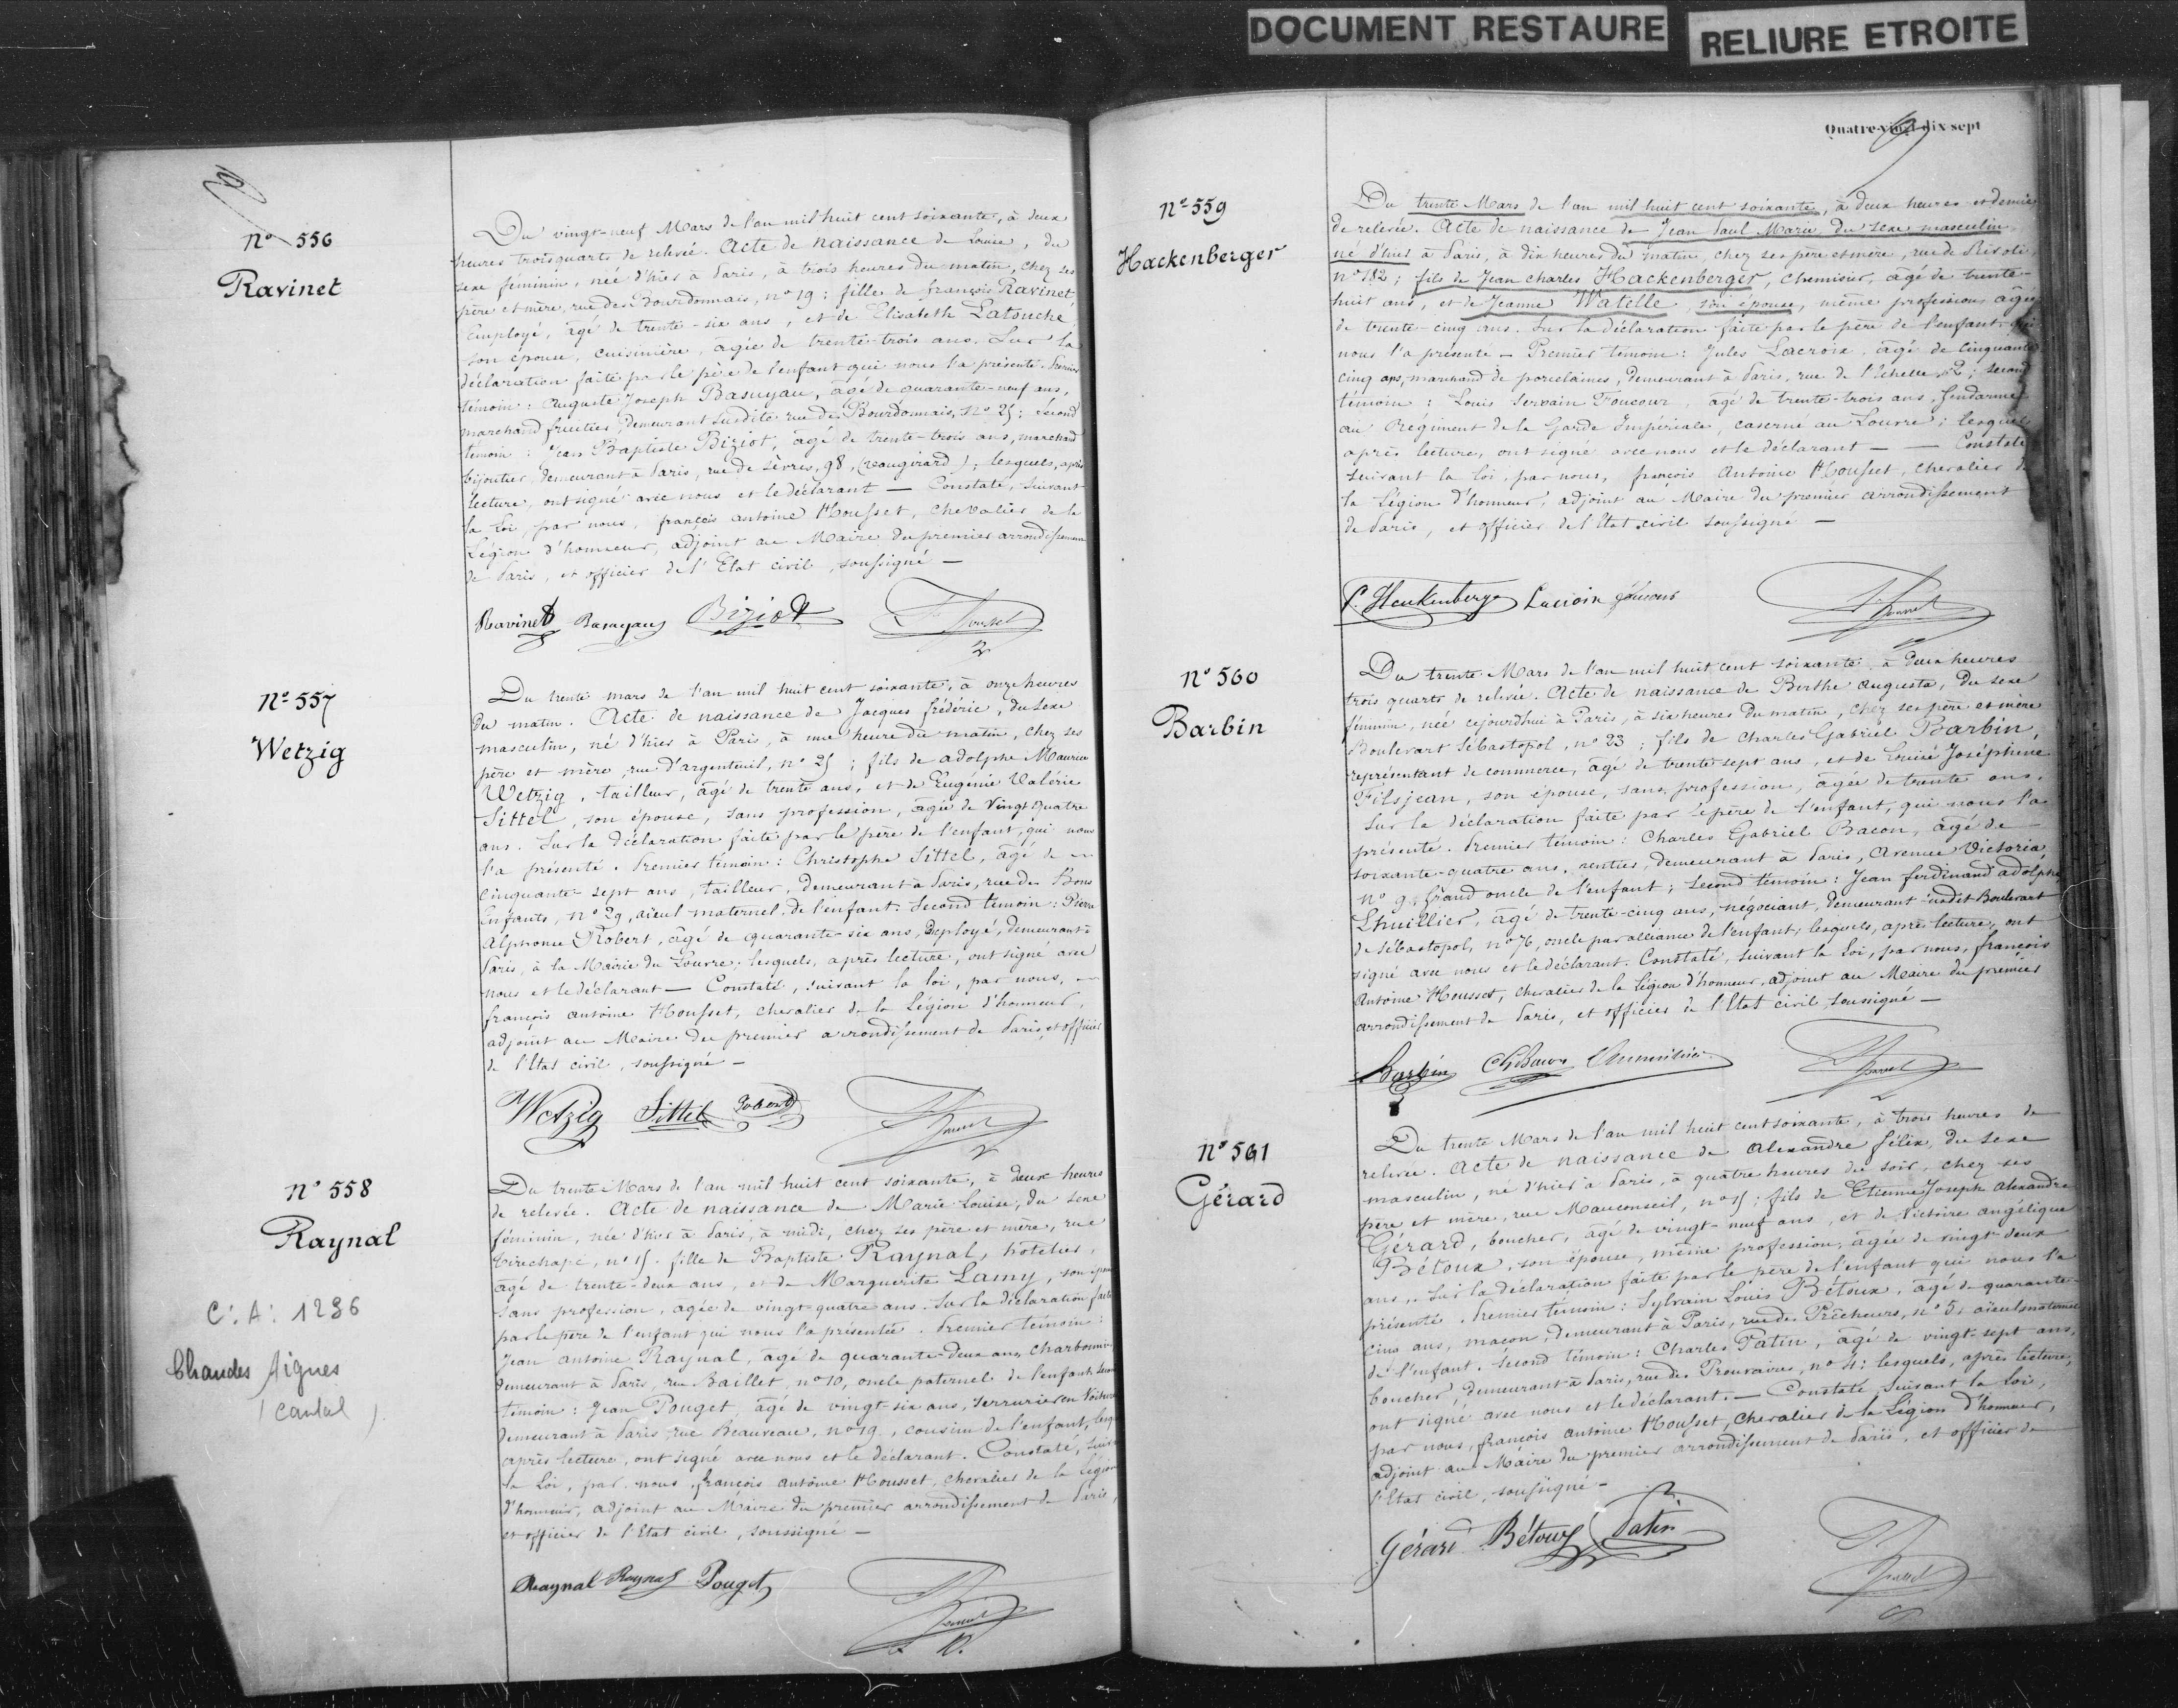 DOCUMENT RESTAURE
RELIURE ETROITE
Nº 556
Ravinet
Du vingt-neuf Mars de l'an mil huit cent soixante, à deux
heures trois quarts de relevée. Acte de naissance de Louise, du
sexe féminin, née d'hier à Paris, à trois heures du matin, chez ses
père et mère, rue des Bourdonnais, nº 19; fille de françois Ravinet,
Employé, âgé de trente-six ans, et de Elisabeth Latouche,
son épouse, cuisinière, âgée de trente-trois ans. Sur la
déclaration faite par le père de l'enfant qui nous l'a présenté. Premier
témoin: Auguste Joseph Basuyau, âgé de quarante-neuf ans,
marchand fruitier, demeurant susdite rue des Bourdonnais, Nº 25; second
témoin: Jean Baptiste Biziot, âgé de trente-trois ans, marchand
bijoutier, demeurant à Paris, rue de Sèvres, 98, (vaugirard); lesquels, après
lecture, ont signé avec nous et le déclarant — Constaté, suivant
la Loi, par nous, françois antoine Housset, Chevalier de la
Légion d'honneur, adjoint au Maire du premier arrondissement
de Paris, et officier de l'Etat civil, soussigné —
Ravinet Basuyau Biziot Housset
Nº 557
Wetzig
Du trente mars de l'an mil huit cent soixante, à onze heures
du matin. Acte de naissance de Jacques fréderic, du sexe
masculin, né d'hier à Paris, à une heure du matin, chez ses
père et mère, rue d'argenteuil, nº 25; fils de adolphe Maurice
Wetzig, tailleur, âgé de trente ans, et de Eugénie Valérie
Sittel, son épouse, sans profession, âgée de Vingt quatre
ans. Sur la déclaration faite par le père de l'enfant, qui nous
l'a présenté. Premier témoin: Christophe Sittel, âgé de
cinquante-sept ans, tailleur, demeurant à Paris, rue des Bons
Enfants, nº 29, aïeul maternel de l'enfant. Second témoin: Pierre
Alphonse Robert, âgé de quarante-six ans, Employé, demeurant à
Paris, à la Mairie du Louvre; lesquels, après lecture, ont signé avec
nous et le déclarant — Constaté, suivant la loi, par nous,
françois antoine Housset, chevalier de la Légion d'honneur,
adjoint au Maire du premier arrondissement de Paris, et officier
de l'Etat civil, soussigné —
Wetzig Sittel Robert Housset
Nº 558
Raynal
C. A. 1236
Chaudes Aigues
(Cantal)
Du trente Mars de l'an mil huit cent soixante, à deux heures
de relevée. Acte de naissance de Marie Louise, du sexe
féminin, née d'hier à Paris, à midi, chez ses père et mère, rue
tirechape, nº 15. fille de Baptiste Raynal, hotelier,
âgé de trente-deux ans, et de Marguerite Lamy, son épouse
sans profession, agée de vingt-quatre ans. Sur la déclaration faite
par le père de l'enfant qui nous l'a présentée. Premier témoin:
Jean antoine Raynal, âgé de quarante-deux ans, charbonnier
demeurant à Paris, rue Baillet, nº 10, oncle paternel de l'enfant. Second
témoin: Jean Pouget, âgé de vingt-six ans, Serrurier en Voitures
demeurant à Paris, rue Beauveau, nº 19, cousin de l'enfant, lesq
après lecture, ont signé avec nous et le déclarant. Constaté, suiv
la Loi, par nous, françois antoine Housset, chevalier de la Légion
d'honneur, adjoint au Maire du premier arrondissement de Paris,
et officier de l'Etat civil, soussigné —
Raynal Raynal Pouget Housset
Quatre-vingt-dix-sept
Nº 559
Hackenberger
Du trente Mars de l'an mil huit cent soixante, à deux heures et demie
de relevée. Acte de naissance de Jean Paul Marie, du sexe masculin,
né d'hier à Paris, à dix heures du matin, chez ses père et mère, rue de Rivoli
nº 182; fils de Jean charles Hackenberger, Chemisier, âgé de trente-
huit ans, et de Jeanne Watelle, son épouse, même profession, âgée
de trente-cinq ans. Sur la déclaration faite par le père de l'enfant qui
nous l'a présenté — Premier témoin: Jules Lacroix, âgé de cinquante
cinq ans, marchand de porcelaines, demeurant à Paris, rue de l'Echelle, nº 2; second
témoin: Louis Servain Foucour, âgé de trente-trois ans, Gendarme
au Régiment de la Garde Impériale, caserné au Louvre; lesquels
après lecture, ont signé avec nous et le déclarant — Constaté
suivant la Loi, par nous, françois Antoine Housset, chevalier de
la Légion d'honneur, adjoint au Maire du premier arrondissement
de Paris, et officier de l'Etat civil soussigné —
Lacroix Housset
Nº 560
Barbin
Du trente Mars de l'an mil huit cent soixante, à deux heures
trois quarts de relevée. Acte de naissance de Berthe Augusta, du sexe
féminin, née cejourd'hui à Paris, à six heures du matin, chez ses père et mère
Boulevart Sébastopol, nº 23; fils de Charles Gabriel Barbin,
représentant de commerce, âgé de trente sept ans, et de Louise Joséphine
Filsjean, son épouse, sans profession, âgée de trente ans.
Sur la déclaration faite par le père de l'enfant, qui nous l'a
présenté. Premier témoin: Charles Gabriel Bacon, âgé de
soixante-quatre ans, rentier, demeurant à Paris, Avenue Victoria
nº 9, Grand oncle de l'enfant; second témoin: Jean ferdinand adolphe
Lhuillier, âgé de trente-cinq ans, négociant, demeurant susdit Boulevart
de Sébastopol, nº 76, oncle par alliance de l'enfant; lesquels, après lecture, ont
signé avec nous et le déclarant. Constaté, suivant la Loi, par nous, françois
Antoine Housset, chevalier de la Légion d'honneur, adjoint au Maire du premier
arrondissement de Paris, et officier de l'Etat civil soussigné —
Barbin Ch Bacon Lhuillier Housset
Nº 561
Gérard
Du trente Mars de l'an mil huit cent soixante, à trois heures de
relevée. Acte de naissance de Alexandre félix, du sexe
masculin, né d'hier à Paris, à quatre heures du soir, chez ses
père et mère, rue Mauconseil, nº 15; fils de Etienne Joseph Alexandre
Gérard, boucher, âgé de vingt-neuf ans, et de Victoire angélique
Bétoux, son épouse, même profession, âgée de vingt-deux
ans. Sur la déclaration faite par le père de l'enfant qui nous l'a
présenté. Premier témoin: Sylvain Louis Bétoux, âgé de quarante-
cinq ans, maçon, demeurant à Paris, rue des Prêcheurs, nº 5, aïeul maternel
de l'enfant. Second témoin: Charles Patin, âgé de vingt-sept ans,
boucher, demeurant à Paris, rue des Prouvaires, nº 4; lesquels, après lecture,
ont signé avec nous et le déclarant. — Constaté, suivant la Loi,
par nous, françois antoine Housset, chevalier de la Légion d'honneur,
adjoint au Maire du premier arrondissement de Paris, et officier de
l'Etat civil, soussigné —
Gérard Bétoux Patin Housset